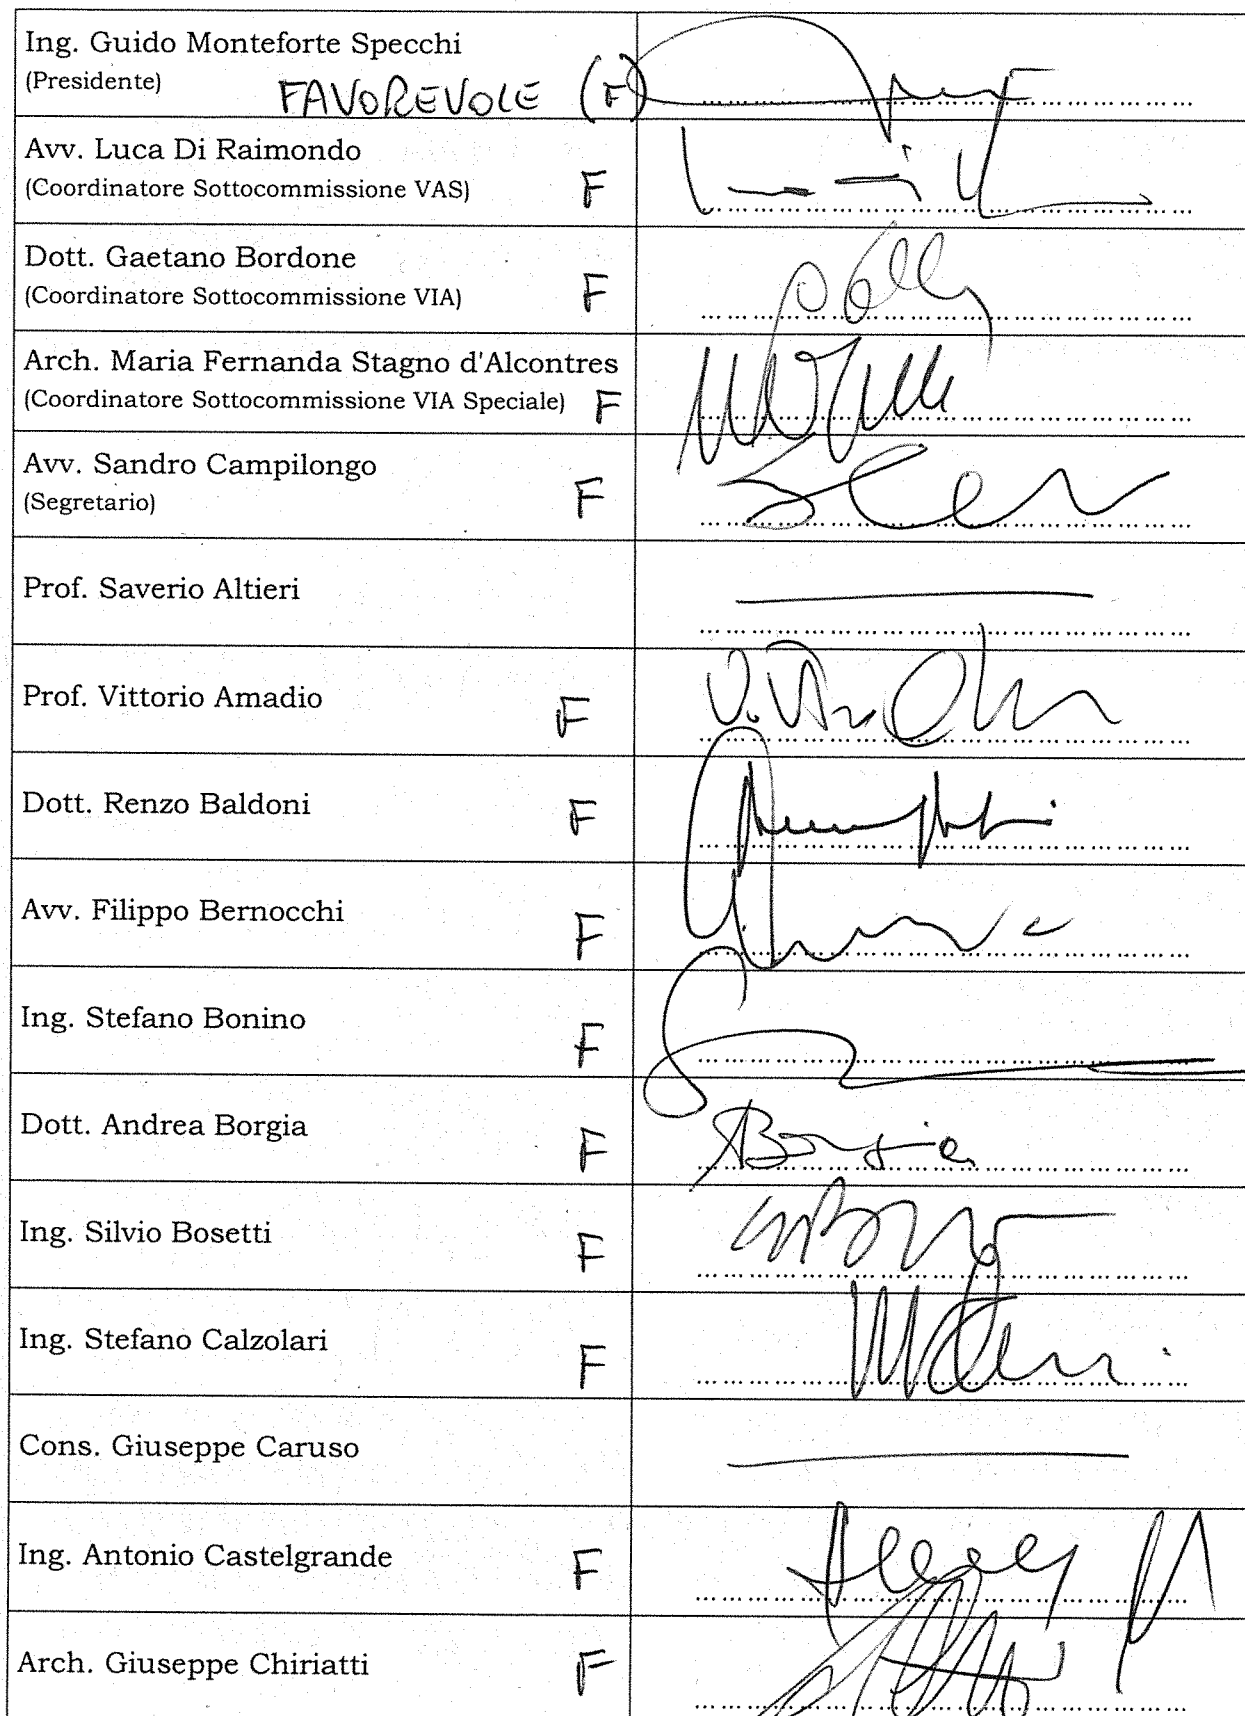 Ing. Guido Monteforte Specchi
(Presidente)
FAVOREVOLE (F)
Avv. Luca Di Raimondo
(Coordinatore Sottocommissione VAS) F
Dott. Gaetano Bordone
(Coordinatore Sottocommissione VIA) F
Arch. Maria Fernanda Stagno d'Alcontres
(Coordinatore Sottocommissione VIA Speciale) F
Avv. Sandro Campilongo
(Segretario) F
Prof. Saverio Altieri
Prof. Vittorio Amadio F
Dott. Renzo Baldoni F
Avv. Filippo Bernocchi F
Ing. Stefano Bonino F
Dott. Andrea Borgia F
ABorgia
Ing. Silvio Bosetti F
Ing. Stefano Calzolari F
Cons. Giuseppe Caruso
Ing. Antonio Castelgrande F
Arch. Giuseppe Chiriatti F